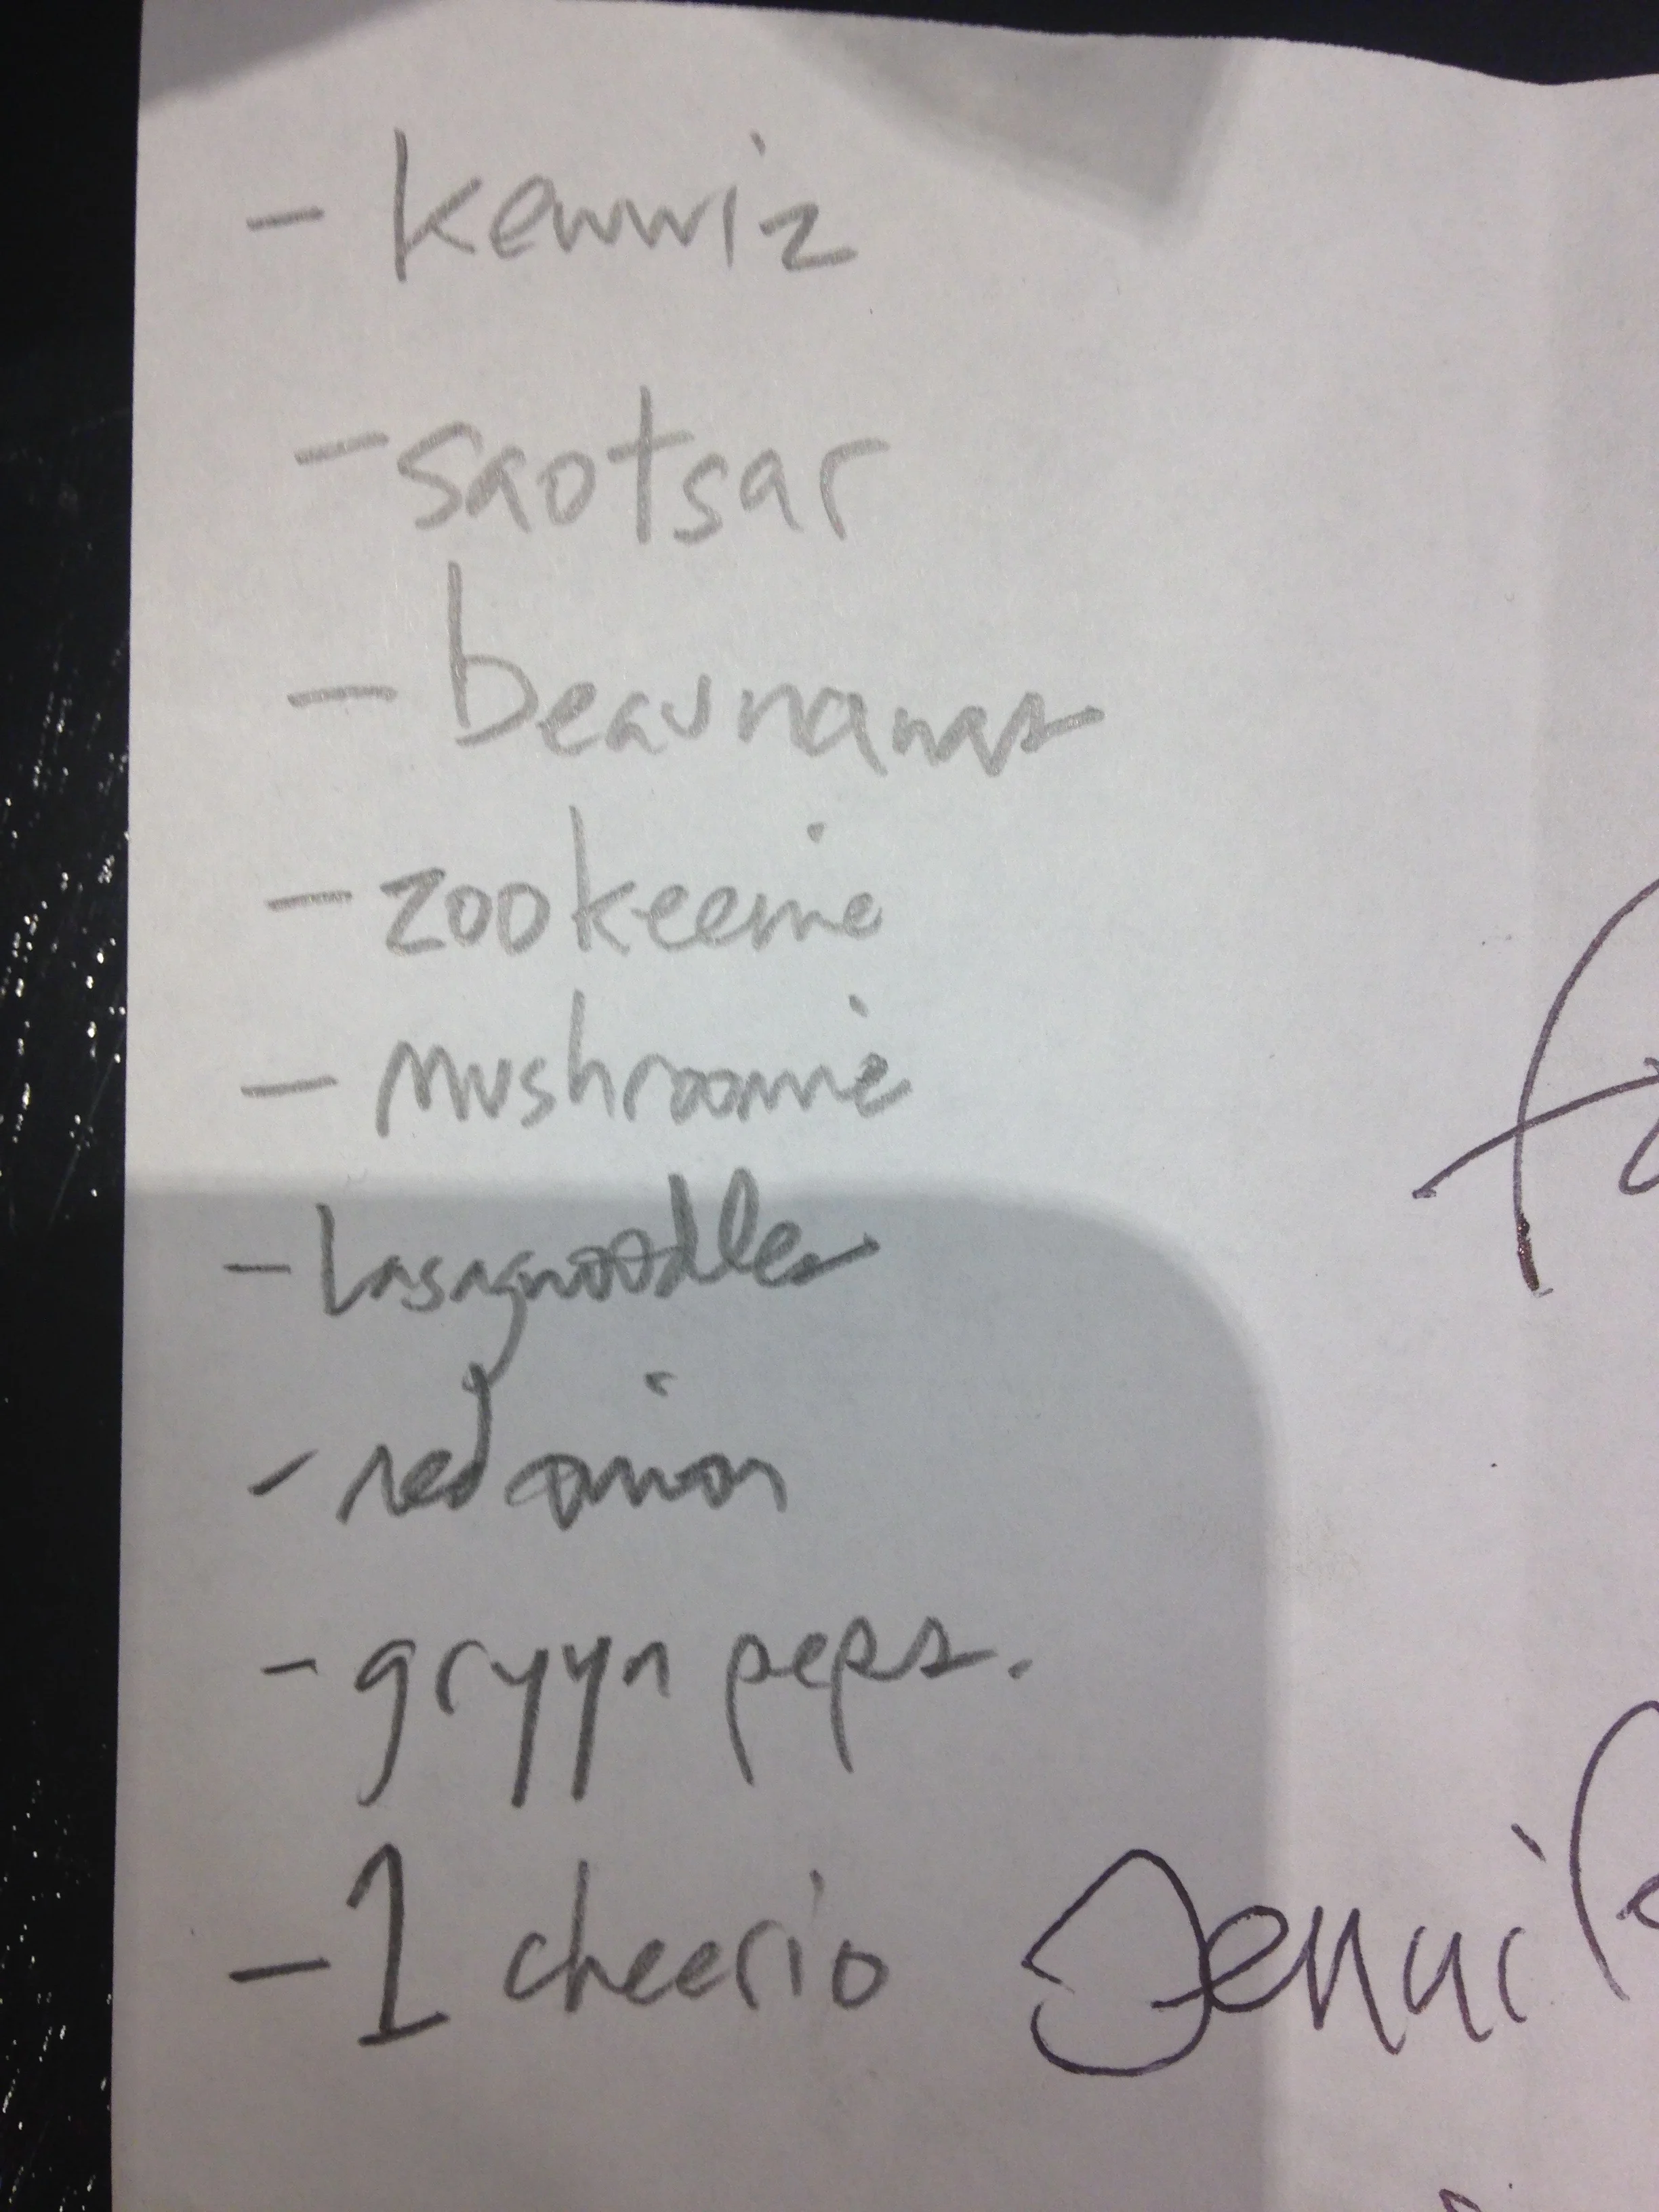 - kewwiz
- saotsar
- beaunanas
- zookeenie
- mushroomie
- Lasagnoodles
- red onion
- gryyn peps.
- 1 cheerio